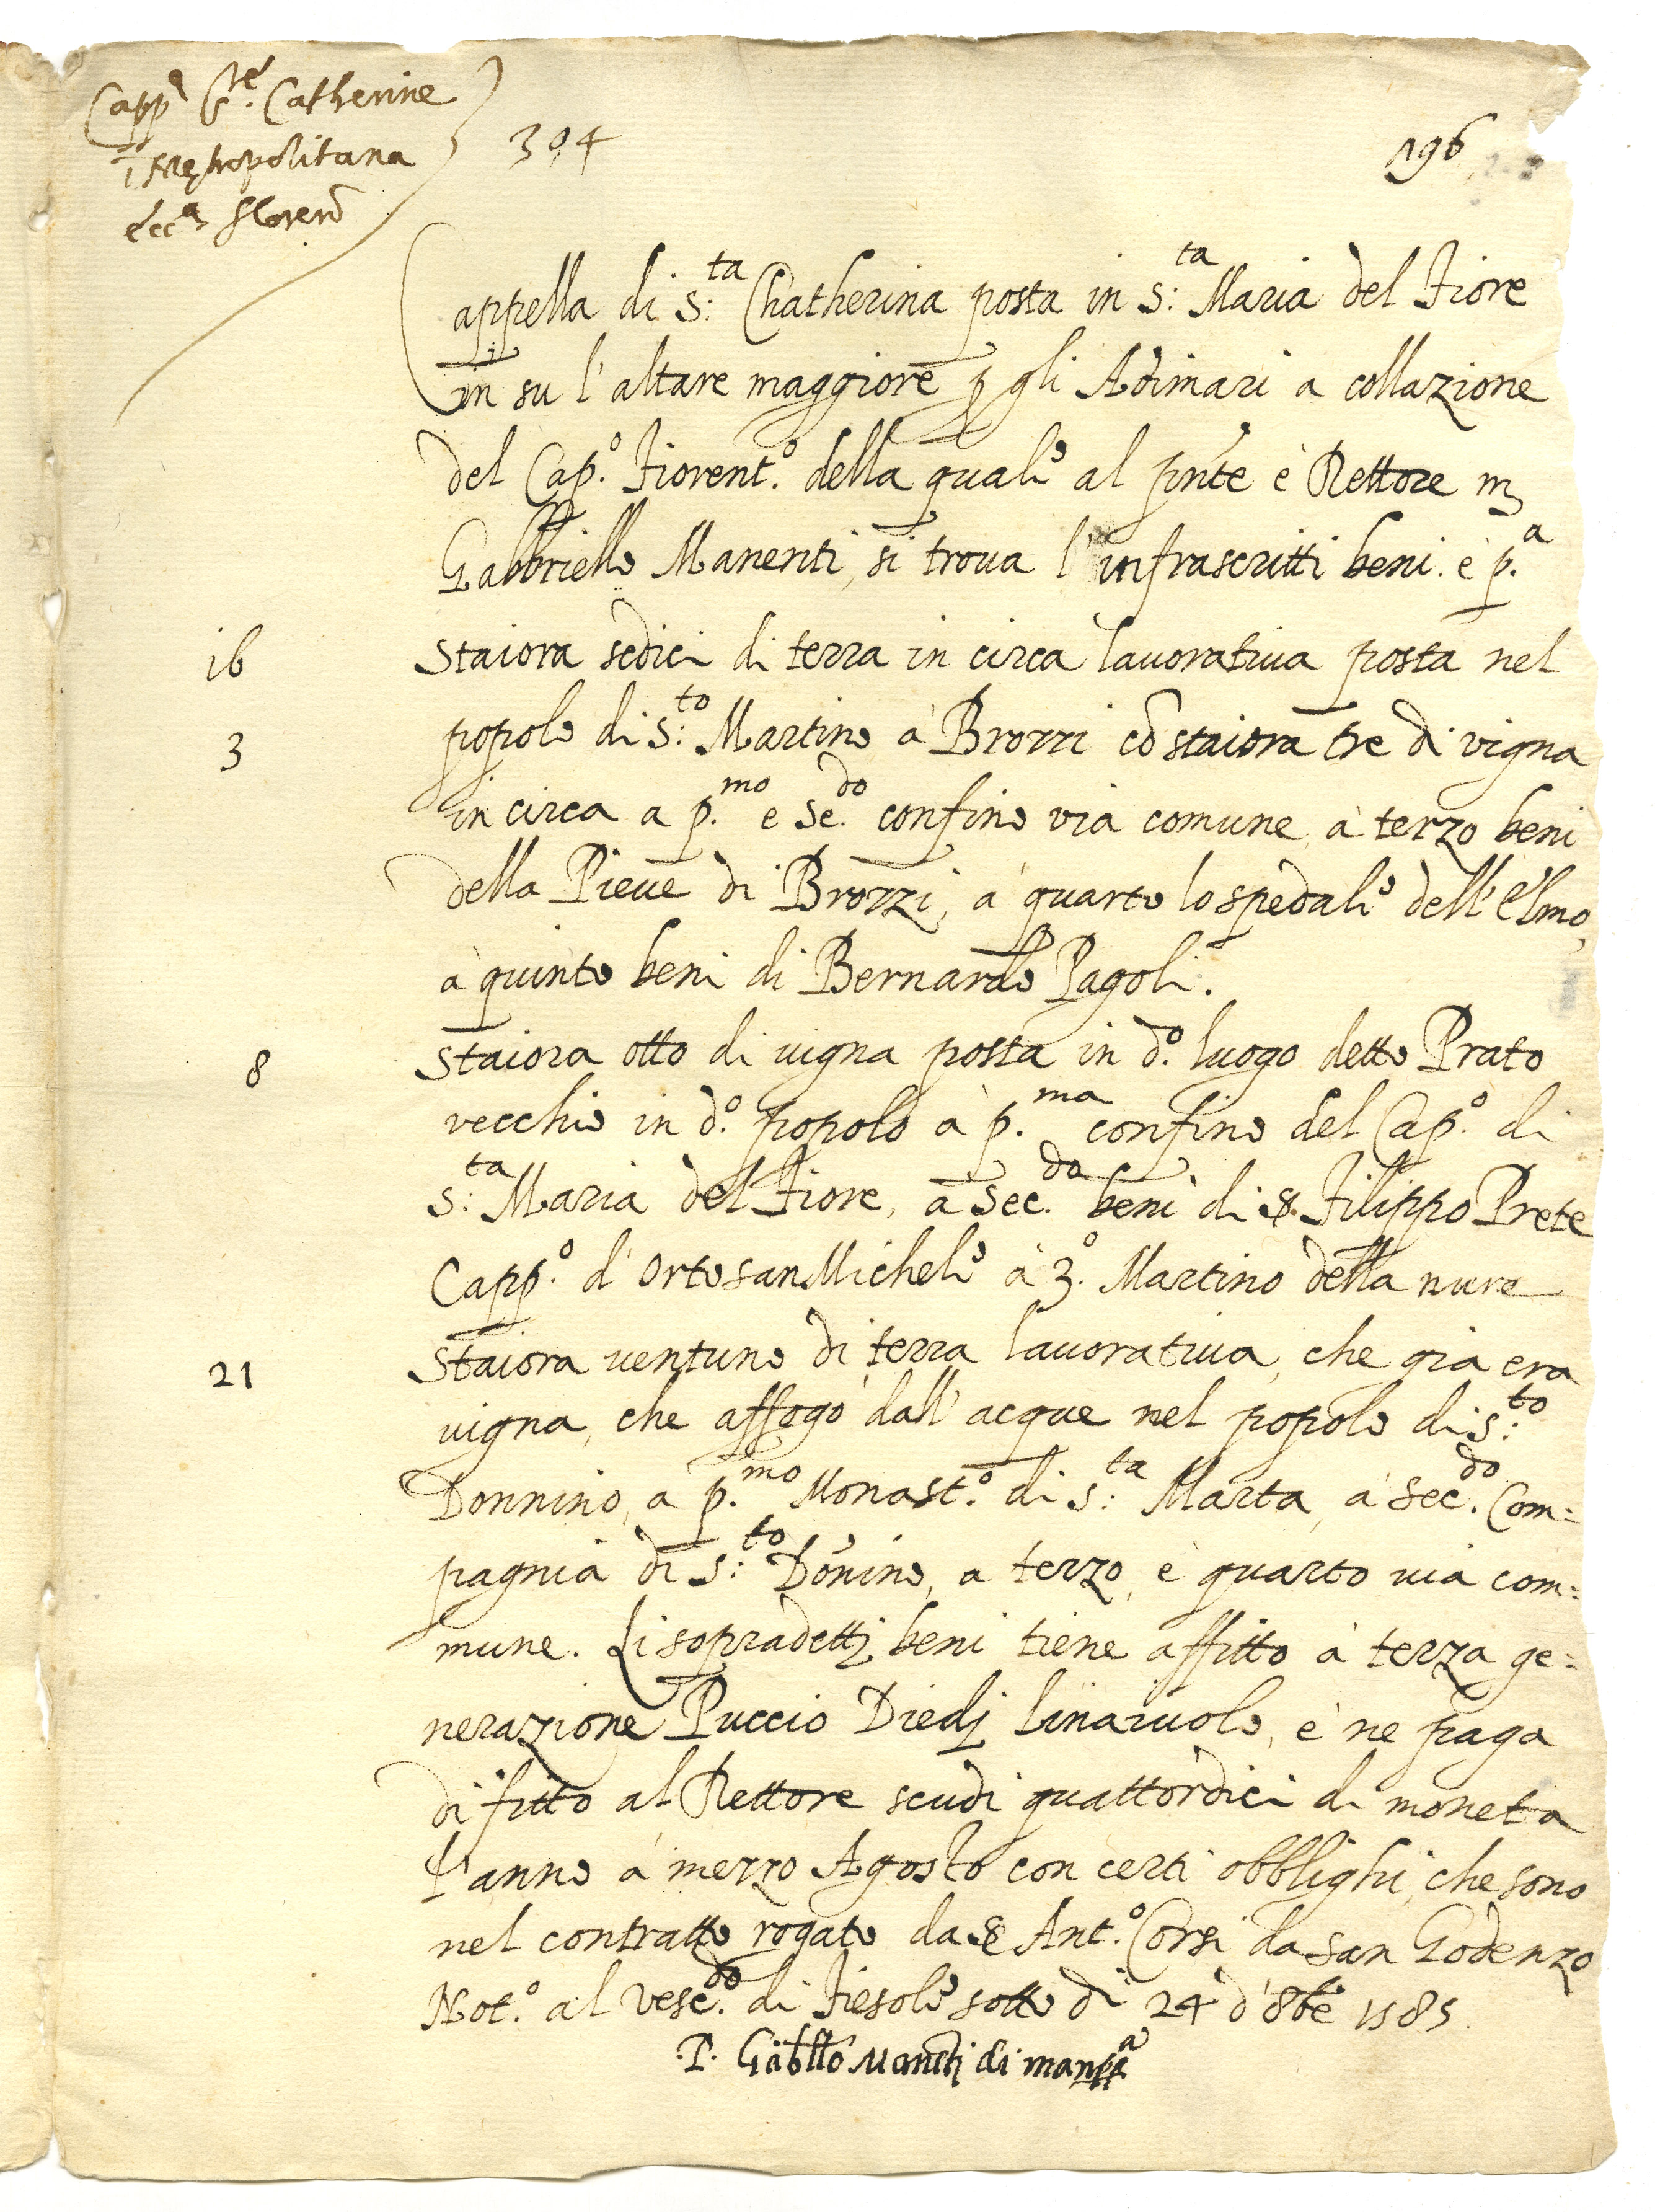 Capp.ª S.te Catherine
ĩ Metropolitana
ecc.ª floren.
304
196
Cappella di S:ta Chatherina posta in S:ta Maria del Fiore
in su l'altare maggiore p gli Adimari a collazione
del Cap.º Fiorent.º della quale al pnte è Rettore m
Gabbriello Manenti, si troua l'infrascritti beni. è p.ª
16 Staiora sedici di terra in circa lauoratiua posta nel
3 popolo di S:to Martino à Brozzi cõ staiora tre di vigna
in circa a p.mo e Se.do confino via comune, à terzo beni
della Pieue di Brozzi, à quarto lo spedale dell'Elmo,
à quinto beni di Bernardo Pagoli.
8 Staiora otto di uigna posta in d.º luogo detto Prato
vecchio in d.º popolo à p.ma confino del Cap.º di
S:ta Maria del Fiore, à Sec.do beni di S. Filippo Prete
Capp.º d'Orto san Michele à 3.º Martino della nure
21 Staiora uentuno di terra lauoratiua, che già era
uigna, che affogò dall'acque nel popolo di S:to
Donnino, a p.mo Monast.º di S:ta Marta, à Sec.do Com=
pagnia di S:to Dõnino, a terzo, è quarto uia com=
mune. Li sopradetti beni tiene affitto à terza ge=
nerazione Puccio Diedi linaiuolo, è ne paga
di fitto al Rettore scudi quattordici di moneta
l'anno à mezzo Agosto con certi obblighi, che sono
nel contratto rogato da Se Ant.º Corsi da san Godenzo
Not.º al Vesc.do di Fiesole sotto dì 24 d'8bẽ 1585.
P. Gabllo Manẽti di man ppª